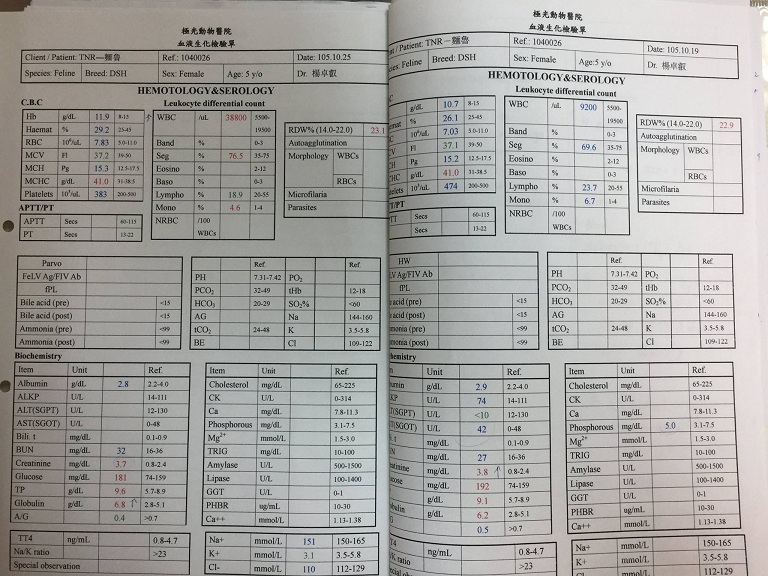 極光動物醫院
血液生化檢驗單
Client / Patient: TNR—麵魯 Ref.: 1040026 Date: 105.10.25
Species: Feline Breed: DSH Sex: Female Age: 5 y/o Dr. 楊卓叡
HEMOTOLOGY&SEROLOGY
C.B.C
Hb g/dL 11.9 8-15 ↑
Haemat % 29.2 25-45
RBC 10⁶/uL 7.83 5.0-11.0
MCV Fl 37.2 39-50
MCH Pg 15.3 12.5-17.5
MCHC g/dL 41.0 31-38.5
Platelets 10³/uL 383 200-500
APTT/PT
APTT Secs 60-115
PT Secs 13-22
Leukocyte differential count
WBC /uL 38800 5500-
19500
Band % 0-3
Seg % 76.5 35-75
Eosino % 2-12
Baso % 0-3
Lympho % 18.9 20-55
Mono % 4.6 1-4
NRBC /100
WBCs
RDW% (14.0-22.0) 23.1
Autoagglutination
Morphology WBCs
RBCs
Microfilaria
Parasites
Parvo Ref.
FeLV Ag/FIV Ab
fPL
Bile acid (pre) <15
Bile acid (post) <15
Ammonia (pre) <99
Ammonia (post) <99
Ref. Ref.
PH 7.31-7.42 PO₂
PCO₂ 32-49 tHb 12-18
HCO₃ 20-29 SO₂% <60
AG Na 144-160
tCO₂ 24-48 K 3.5-5.8
BE Cl 109-122
Biochemistry
Item Unit Ref.
Albumin g/dL 2.8 2.2-4.0
ALKP U/L 14-111
ALT(SGPT) U/L 12-130
AST(SGOT) U/L 0-48
Bili. t mg/dL 0.1-0.9
BUN mg/dL 32 16-36
Creatinine mg/dL 3.7 0.8-2.4
Glucose mg/dL 181 74-159
TP g/dL 9.6 5.7-8.9
Globulin g/dL 6.8 ↑ 2.8-5.1
A/G 0.4 >0.7
Item Unit Ref.
Cholesterol mg/dL 65-225
CK U/L 0-314
Ca mg/dL 7.8-11.3
Phosphorous mg/dL 3.1-7.5
Mg²⁺ mmol/L 1.5-3.0
TRIG mg/dL 10-100
Amylase U/L 500-1500
Lipase U/L 100-1400
GGT U/L 0-1
PHBR ug/mL 10-30
Ca++ mmol/L 1.13-1.38
TT4 ng/mL 0.8-4.7
Na/K ratio >23
Special observation
Na+ mmol/L 151 150-165
K+ mmol/L 3.1 3.5-5.8
Cl- mmol/L 110 112-129
極光動物醫院
血液生化檢驗單
/ Patient: TNR－麵魯 Ref.: 1040026 Date: 105.10.19
Feline Breed: DSH Sex: Female Age:5 y/o Dr. 楊卓叡
HEMOTOLOGY&SEROLOGY
g/dL 10.7 8-15
% 26.1 25-45
10⁶/uL 7.03 5.0-11.0
Fl 37.1 39-50
Pg 15.2 12.5-17.5
MCHC g/dL 41.0 31-38.5
10³/uL 474 200-500
Secs 60-115
Secs 13-22
Leukocyte differential count
WBC /uL 9200 5500-
19500
Band % 0-3
Seg % 69.6 35-75
Eosino % 2-12
Baso % 0-3
Lympho % 23.7 20-55
Mono % 6.7 1-4
NRBC /100
WBCs
RDW% (14.0-22.0) 22.9
Autoagglutination
Morphology WBCs
RBCs
Microfilaria
Parasites
HW Ref.
LV Ag/FIV Ab
fPL
acid (pre) <15
acid (post) <15
(pre) <99
(post) <99
Ref. Ref.
PH 7.31-7.42 PO₂
PCO₂ 32-49 tHb 12-18
HCO₃ 20-29 SO₂% <60
AG Na 144-160
tCO₂ 24-48 K 3.5-5.8
BE Cl 109-122
Unit Ref.
g/dL 2.9 2.2-4.0
U/L 74 14-111
(SGPT) U/L <10 12-130
(SGOT) U/L 42 0-48
mg/dL 0.1-0.9
mg/dL 27 16-36
mg/dL 3.8 ↑ 0.8-2.4
mg/dL 192 74-159
g/dL 9.1 5.7-8.9
g/dL 6.2 2.8-5.1
0.5 >0.7
Item Unit Ref.
Cholesterol mg/dL 65-225
CK U/L 0-314
Ca mg/dL 7.8-11.3
Phosphorous mg/dL 5.0 3.1-7.5
Mg²⁺ mmol/L 1.5-3.0
TRIG mg/dL 10-100
Amylase U/L 500-1500
Lipase U/L 100-1400
GGT U/L 0-1
PHBR ug/mL 10-30
Ca++ mmol/L 1.13-1.38
ng/mL 0.8-4.7
ratio >23
Na+ mmol/L 150-165
K+ mmol/L 3.5-5.8
Cl- mmol/L 112-129